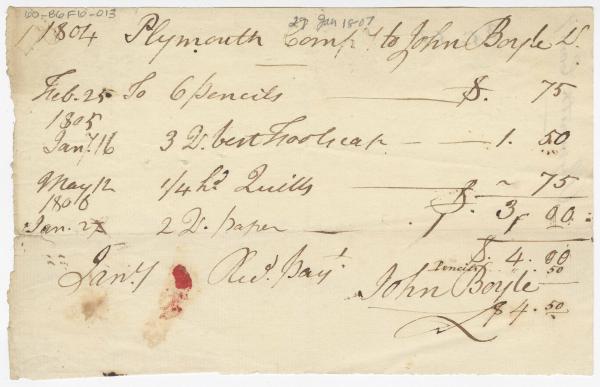 60-B6F10-013
27 Jan 1807
1804 Plymouth Comp.y to John Boyle Dr.
Feb. 25 To 6 pencils $. 75
1805
Jan.y 16 3 Qr. best Foolscap 1. 50
May 12 1/4 hd Quills ~ 75
$. 3, 00
1806
Jan. 27 2 Qr. paper 1
$. 4. 00
Pencils 50
Jan.y Recd. pay.t
John Boyle
$ 4. 50